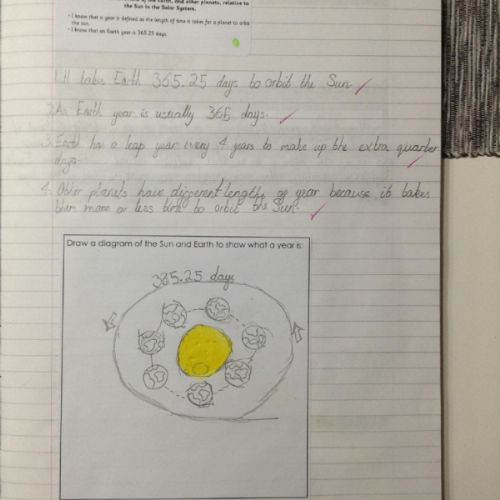 of the Earth, and other planets, relative to
the Sun in the Solar System.
• I know that a year is defined as the length of time it takes for a planet to orbit
the sun.
• I know that an Earth year is 365.25 days.
1. It takes Earth 365.25 days to orbit the Sun.
2. An Earth year is usually 365 days.
3. Earth has a leap year every 4 years to make up the extra quarter
days.
4. Other planets have different lengths of year because it takes
them more or less time to orbit the Sun.
Draw a diagram of the Sun and Earth to show what a year is:
365.25 days